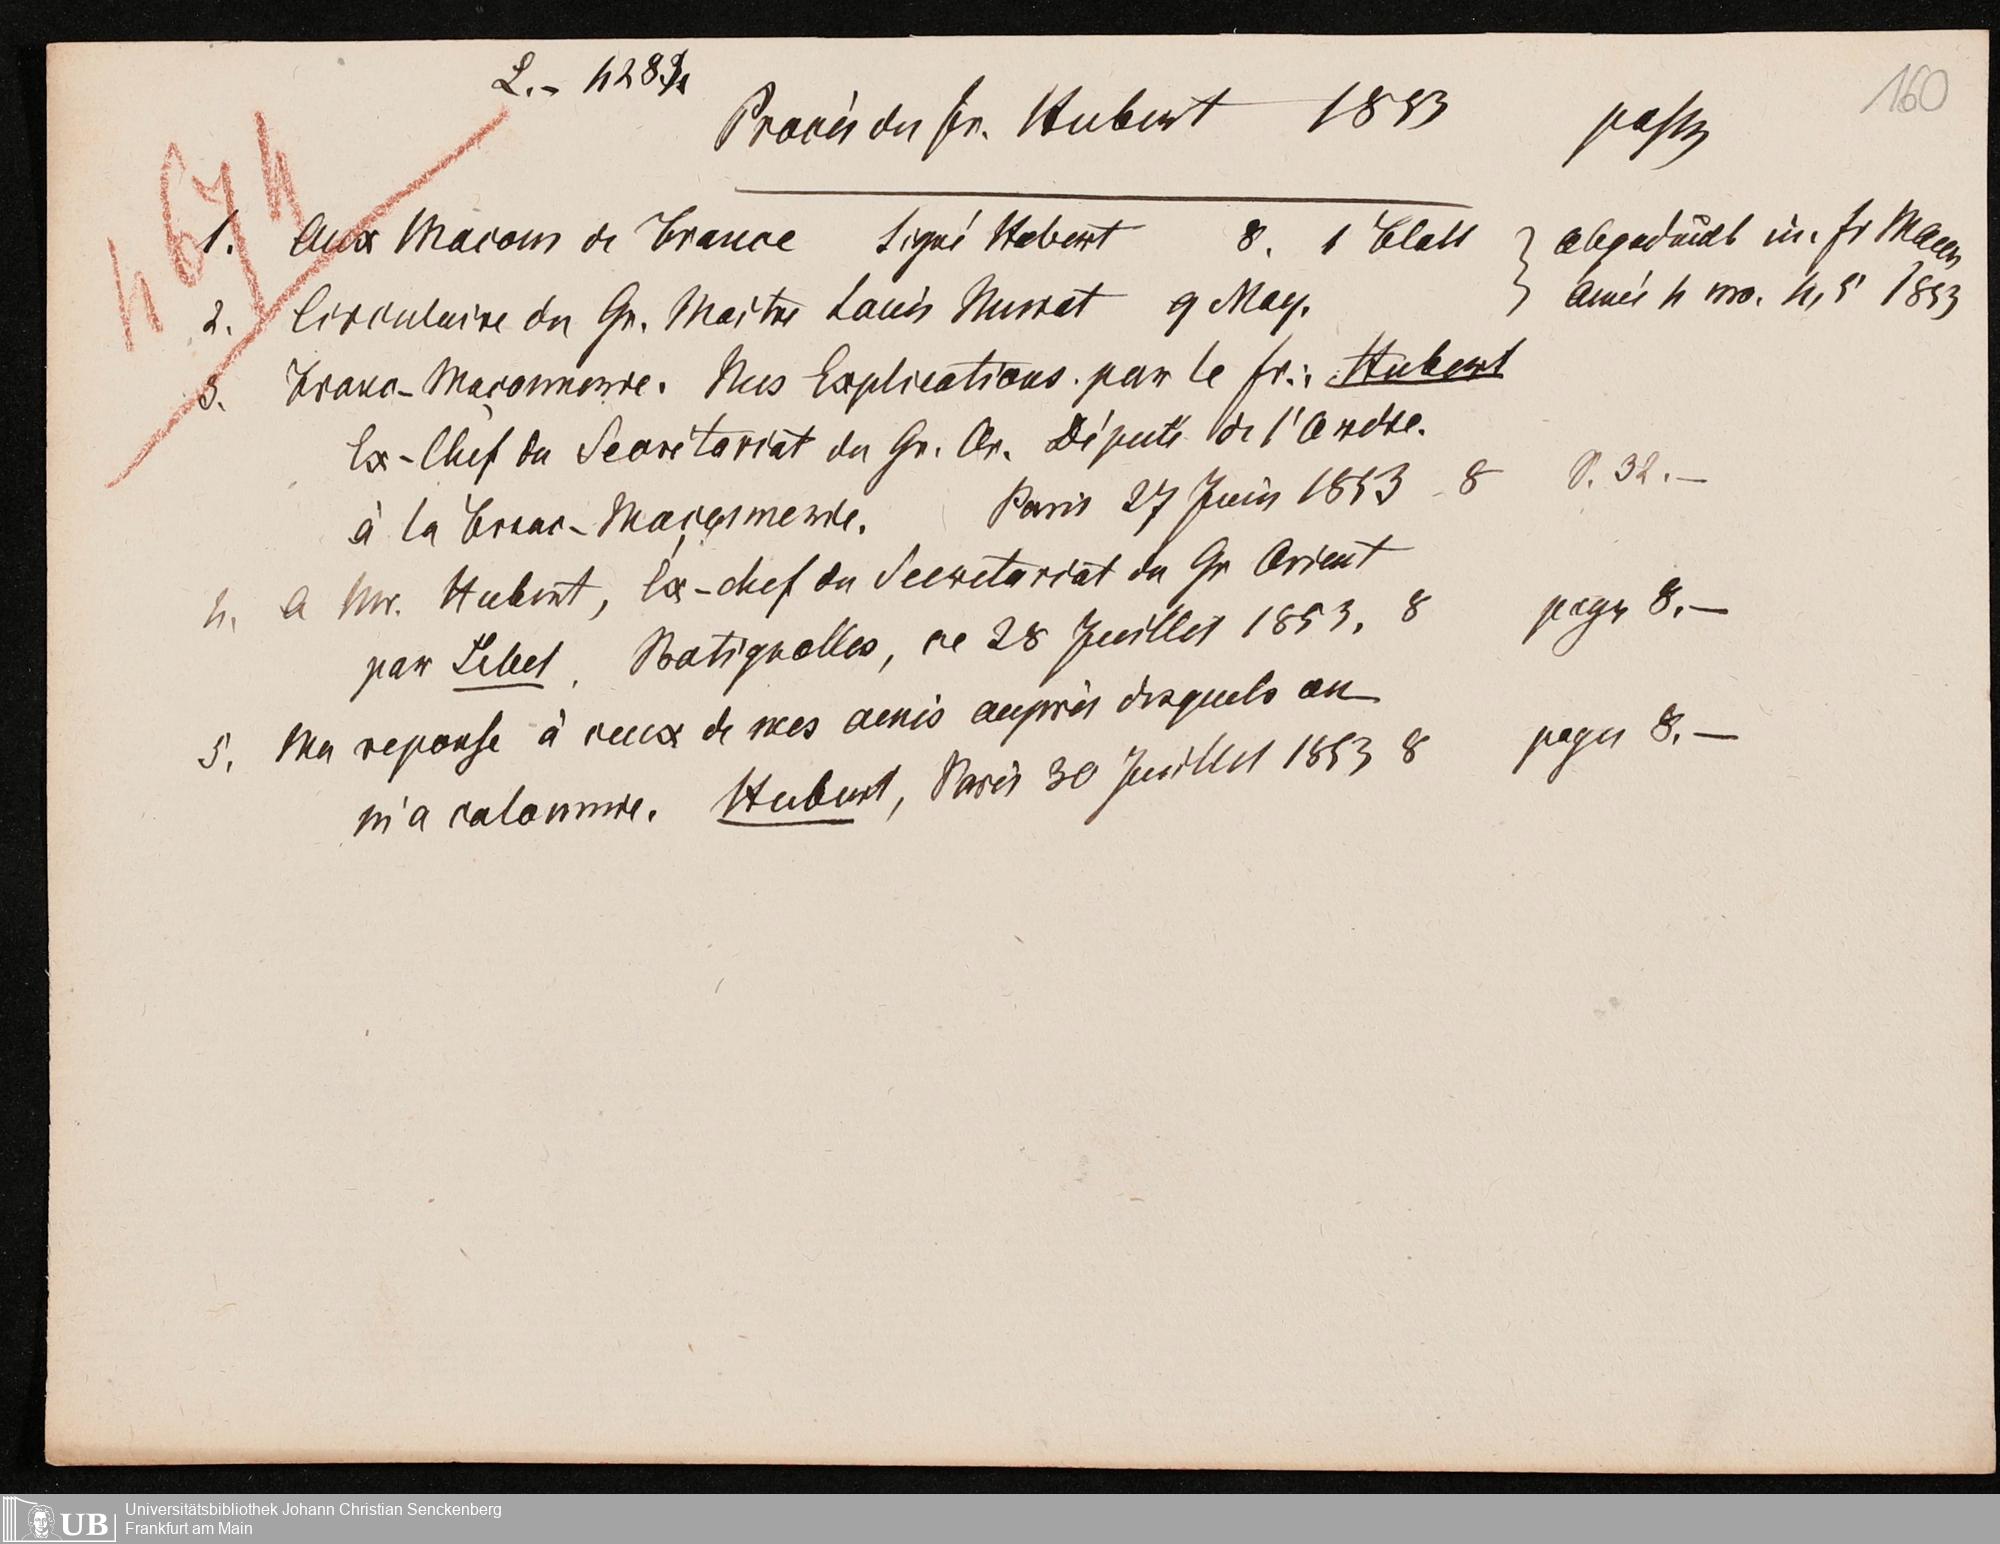 160
L.- 4283
Procès du fr. Hubert 1853
4674
1. Aux Macons de France Signé Hubert 8. 1 Blatt } abgedruckt in. fr Macon
2. Circulaire du Gr. Maitre Louis Murat 9 May. Année 4 no. 4, 5 1853
3. Franc-Maçonnerie. Mes Explications par le fr∴ Hubert
Ex-Chef du Secrétariat du Gr. Or. Député de l'Ordre.
à la Franc-Maçonnerie. Paris 27 Juin 1853 8 S. 32.—
4. A Mr. Hubert, Ex-chef du Secretariat du Gr Orient
par Lebel. Batignolles, ce 28 Juillet 1853. 8 pages 8.—
5. Ma reponse à ceux de mes amis auprès desquels on
m'a calomnie. Hubert, Paris 30 Juillet 1853 8 pages 8.—
UB
Universitätsbibliothek Johann Christian Senckenberg
Frankfurt am Main